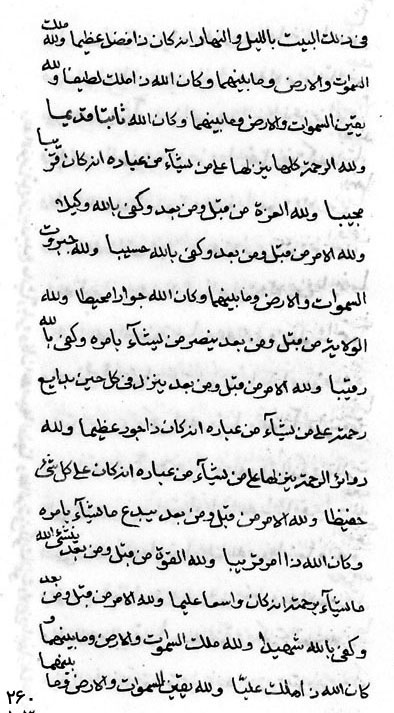 فی ذلک البیت باللیل و النهار انه کان ذا فضل عظیما و لله ملک
السموات و الارض و ما بینهما و کان الله ذا ملک لطیفا و لله
یقین السموات و الارض و ما بینهما و کان الله ثابتا قدیما
و لله الرحمة کلها ینزلها علی من یشآء من عباده انه کان قریبا
مجیبا و لله العزة من قبل و من بعد و کفی بالله وکیلا
و لله الامر من قبل و من بعد و کفی بالله حسیبا و لله جبروت
السموات و الارض و ما بینهما و کان الله جوادا محیطا و لله
الولایة من قبل و من بعد ینصر من یشآء بامره و کفی بالله
رقیبا و لله الامر من قبل و من بعد ینزل فی کل حین بدایع
رحمته علی من یشآء من عباده انه کان ذا جود عظیما و لله
دوائر الرحمة ینزلها علی من یشآء من عباده انه کان علی کل شیء
حفیظا و لله الامر من قبل و من بعد یبدع ما یشآء بامره
و کان الله ذا امر قریبا و لله القوة من قبل و من بعد ینشئ الله
ما یشآء برحمته انه کان واسعا علیما و لله الامر من قبل و من بعد
و کفی بالله شهیدا و لله ملک السموات و الارض و ما بینهما و
کان الله ذا ملک علیا و لله یقین السموات و الارض و ما بینهما
۲۶۰